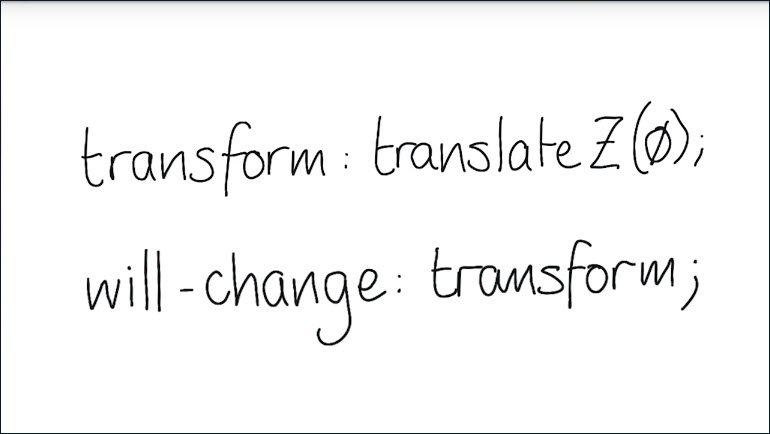 transform: translateZ(0);
will-change: transform;